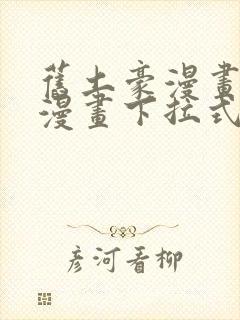 舊土豪漫畫
漫畫下拉式
彥河看柳